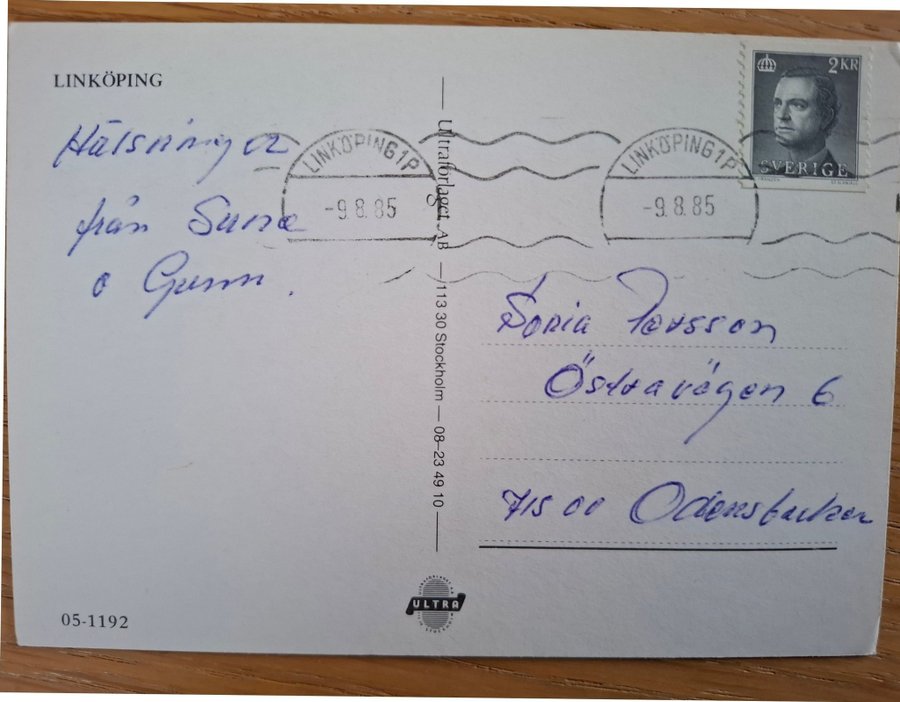 LINKÖPING
Hälsningar
från Sune
o Gunn.
LINKÖPING 1P
-9.8.85
LINKÖPING 1P
-9.8.85
2 KR
SVERIGE
Ultraförlaget AB — 113 30 Stockholm — 08-23 49 10
Sonia Persson
Östravägen 6
715 00 Odensbacken
ULTRA
05-1192